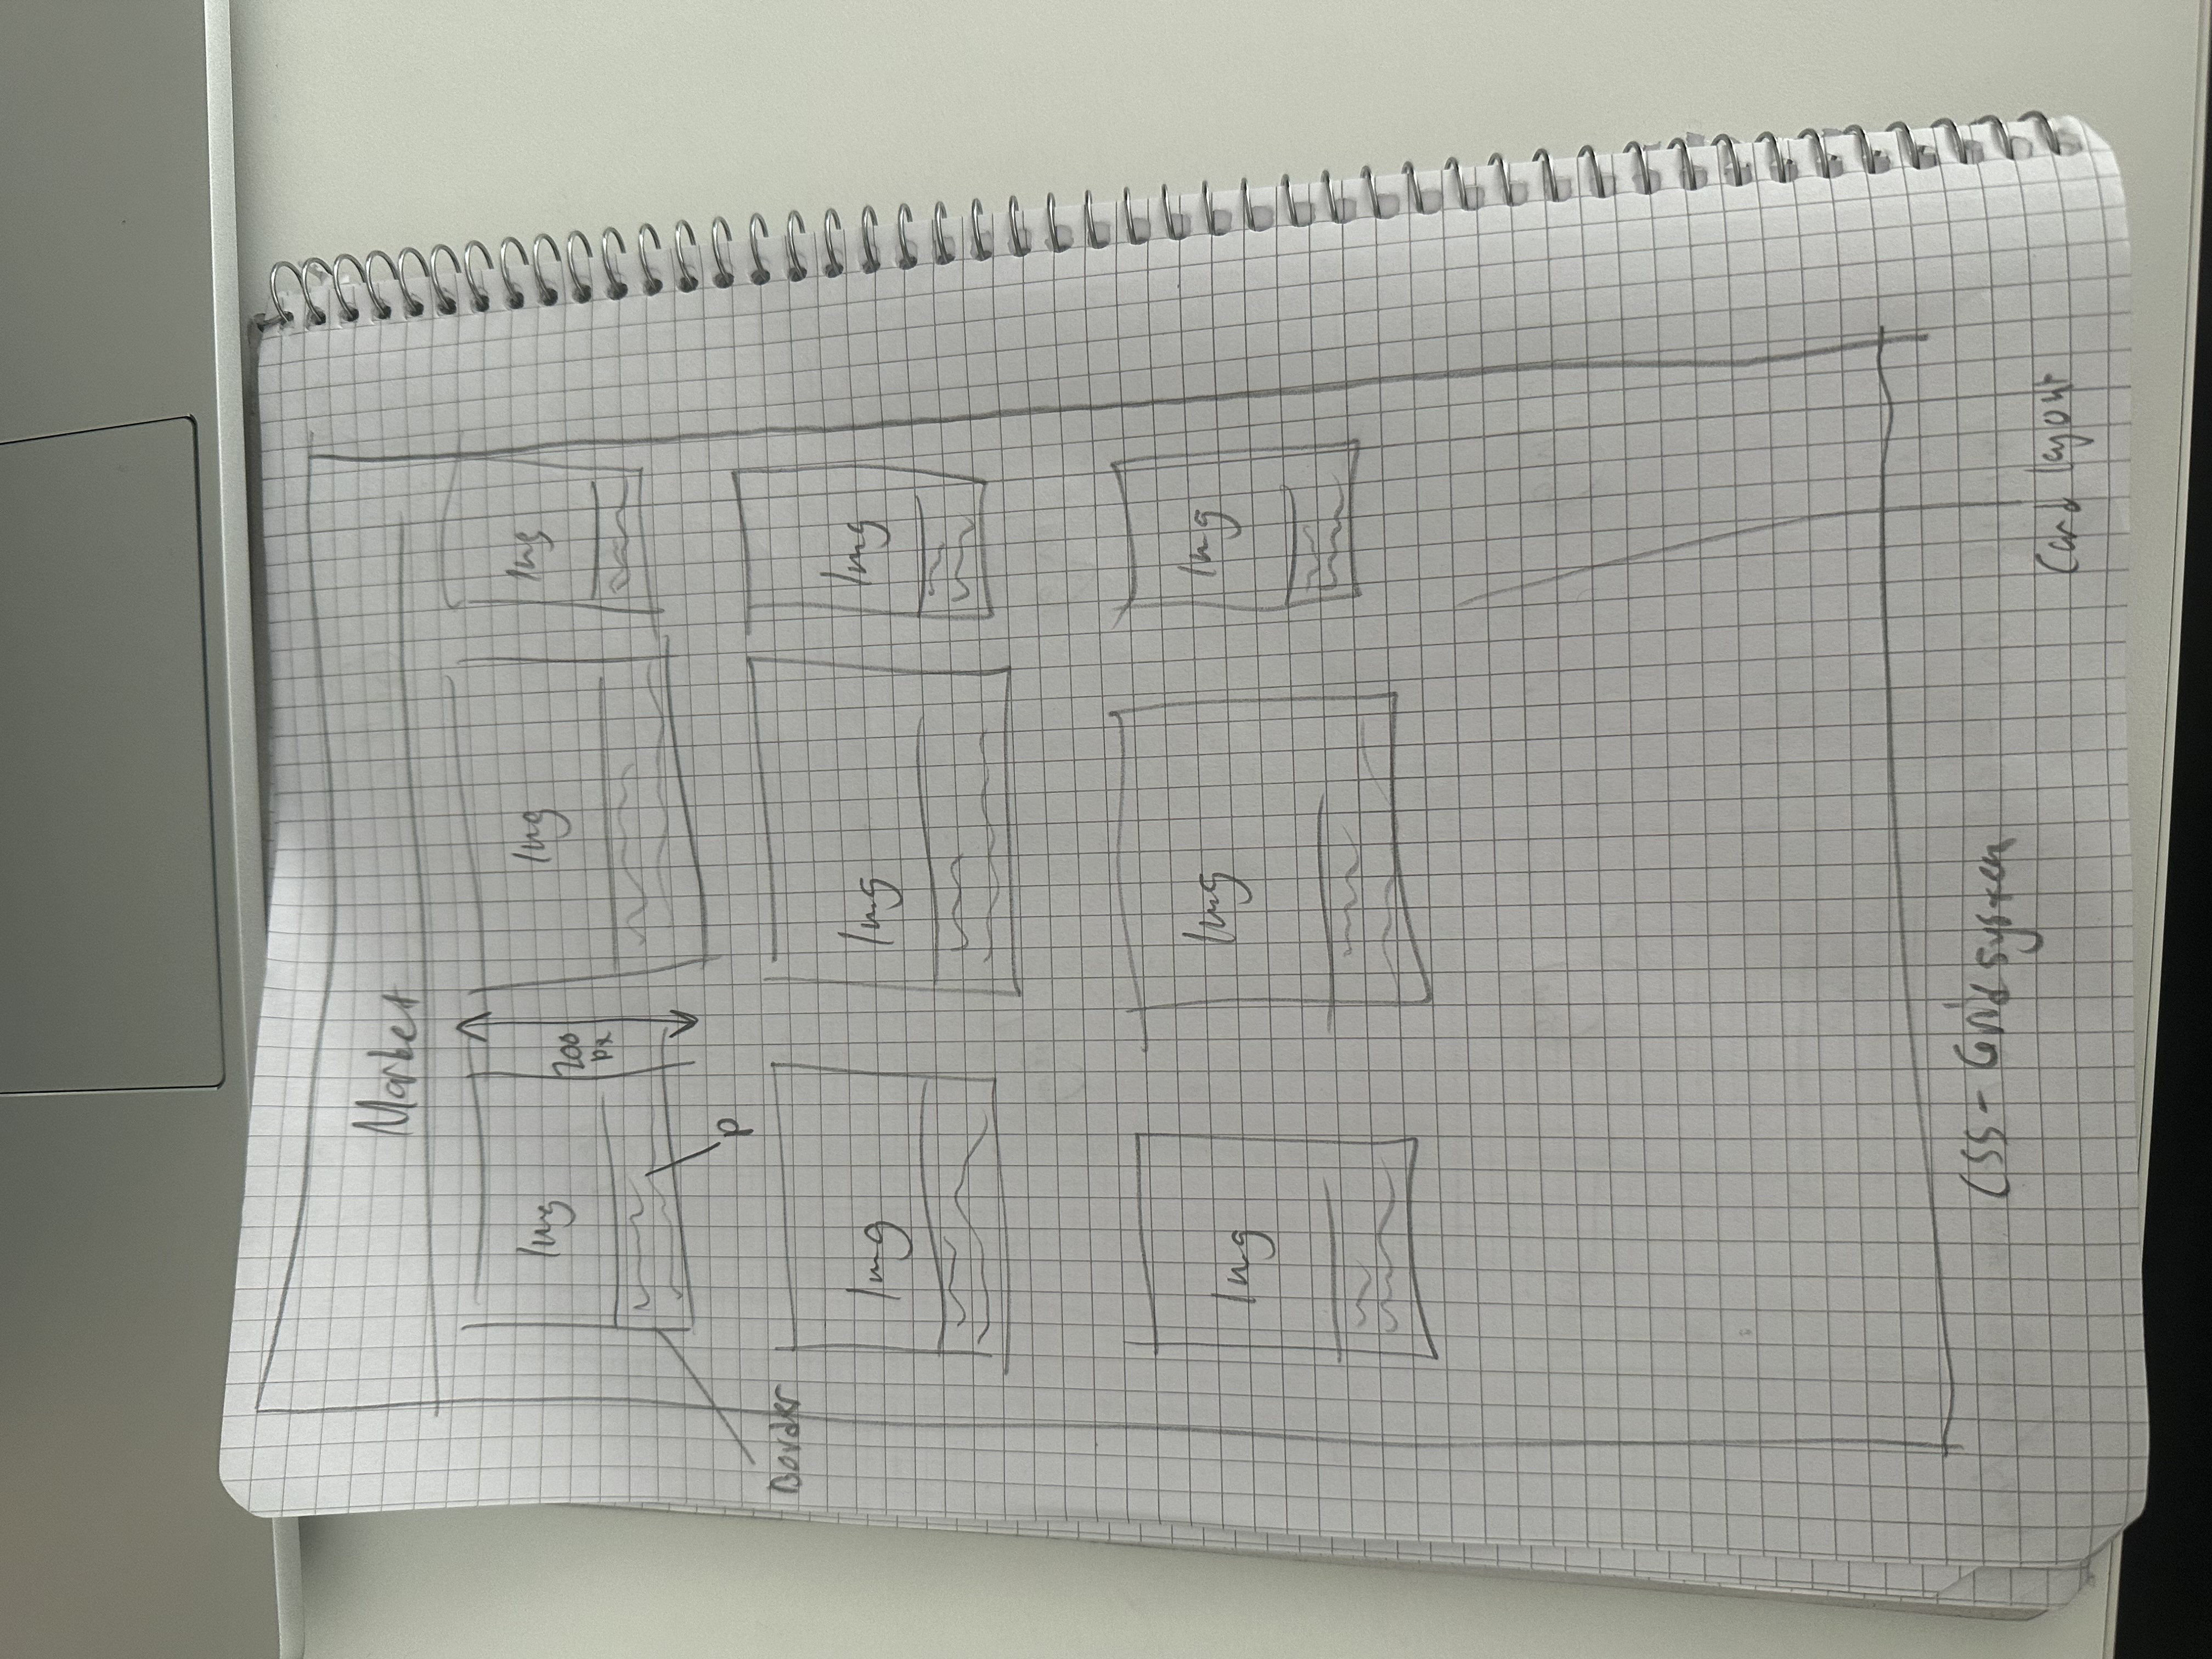 Market
Img
Img
Img
200
px
p
Border
Img
Img
Img
Img
Img
Img
CSS - Grid system
Card layout